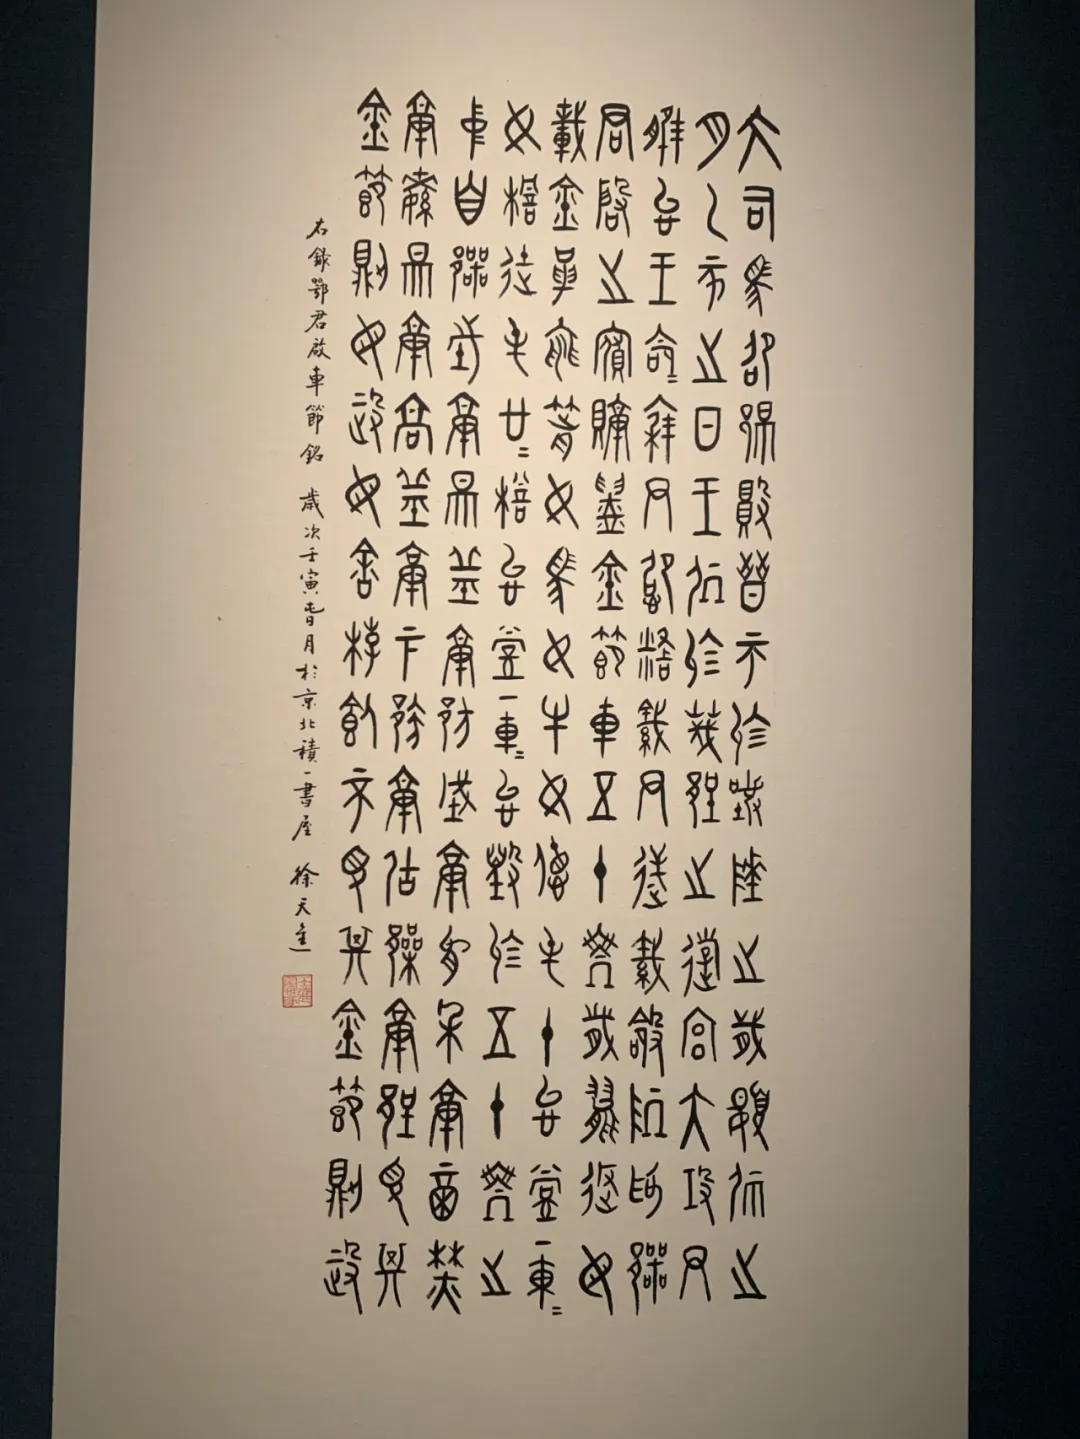 大司馬卲陽敗晉帀於襄陵之歲夏𡰥之
月乙亥之日王凥於茂郢之遊宮大攻尹
脽台王命=集尹悼糈裁尹逆裁令阢為鄂
君啟之府賡鑄金節車五十乘歲罷返毋
載金革黽箭女馬女牛女特屯十台堂一車=
女檐徒屯廿=檐台堂一車=台毀於五十乘之
中自鄂往就昜丘就邡城就象禾就畐焚
就繁昜就高丘就下蔡就居巢就郢見其
金節則毋政毋舍桴飤不見其金節則政
右錄鄂君啟車節銘 歲次壬寅春月於京北積一書屋 徐天進